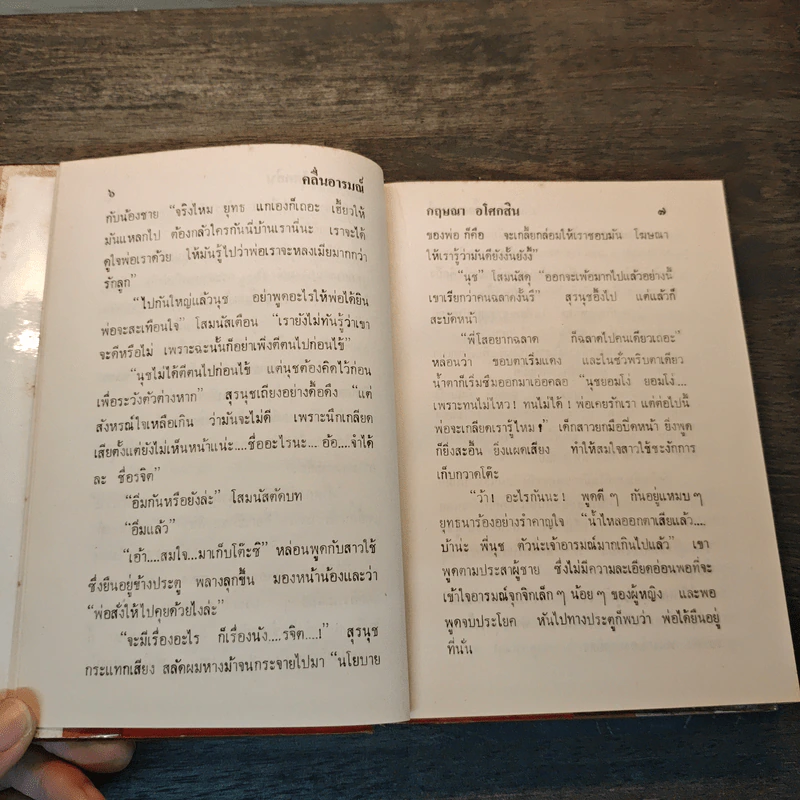 ๖
คลื่นอารมณ์
กับน้องชาย “จริงไหม ยุทธ แกเองก็เถอะ เฮี้ยวให้
มันแหลกไป ต้องกลัวใครกันนี่บ้านเรานี่นะ เราจะได้
ดูใจพ่อเราด้วย ให้มันรู้ไปว่าพ่อเราจะหลงเมียมากกว่า
รักลูก”
“ไปกันใหญ่แล้วนุช อย่าพูดอะไรให้พ่อได้ยิน
พ่อจะสะเทือนใจ” โสมนัสเตือน “เรายังไม่ทันรู้ว่าเขา
จะดีหรือไม่ เพราะฉะนั้นก็อย่าเพิ่งตีตนไปก่อนไข้”
“นุชไม่ได้ตีตนไปก่อนไข้ แต่นุชต้องคิดไว้ก่อน
เพื่อระวังตัวต่างหาก” สุรนุชเถียงอย่างดื้อดึง “แต่
สังหรณ์ใจเหลือเกิน ว่ามันจะไม่ดี เพราะนึกเกลียด
เสียตั้งแต่ยังไม่เห็นหน้าแน่ะ....ชื่ออะไรนะ... อ้อ....จำได้
ละ ชื่อรจิต”
“อิ่มกันหรือยังล่ะ” โสมนัสตัดบท
“อิ่มแล้ว”
“เอ้า....สมใจ...มาเก็บโต๊ะซิ” หล่อนพูดกับสาวใช้
ซึ่งยืนอยู่ข้างประตู พลางลุกขึ้น มองหน้าน้องและว่า
“พ่อสั่งให้ไปคุยด้วยไงล่ะ”
“จะมีเรื่องอะไร ก็เรื่องนัง....รจิต....!” สุรนุช
กระแทกเสียง สลัดผมหางม้าจนกระจายไปมา “นโยบาย
กฤษณา อโศกสิน
๗
ของพ่อ ก็คือ จะเกลี้ยกล่อมให้เราชอบมัน โฆษณา
ให้เรารู้ว่ามันดียังงั้นยังงี้”
“นุช” โสมนัสดุ “ออกจะเพ้อมากไปแล้วอย่างนี้
เขาเรียกว่าคนฉลาดงั้นรึ” สุรนุชอึ้งไป แต่แล้วก็
สะบัดหน้า
“พี่โสอยากฉลาด ก็ฉลาดไปคนเดียวเถอะ”
หล่อนว่า ขอบตาเริ่มแดง และในชั่วพริบตาเดียว
น้ำตาก็เริ่มซึมออกมาเอ่อคลอ “นุชยอมโง่ ยอมโง่...
เพราะทนไม่ไหว ! ทนไม่ได้ ! พ่อเคยรักเรา แต่ต่อไปนี้
พ่อจะเกลียดเรารู้ไหม !” เด็กสาวยกมือปิดหน้า ยิ่งพูด
ก็ยิ่งสะอื้น ยิ่งแผดเสียง ทำให้สมใจสาวใช้ชะงักการ
เก็บกวาดโต๊ะ
“ว้า ! อะไรกันนะ ! พูดดี ๆ กันอยู่แหมบ ๆ
ยุทธนาร้องอย่างรำคาญใจ “น้ำไหลออกตาเสียแล้ว....
บ้าน่ะ พี่นุช ตัวน่ะเจ้าอารมณ์มากเกินไปแล้ว” เขา
พูดตามประสาผู้ชาย ซึ่งไม่มีความละเอียดอ่อนพอที่จะ
เข้าใจอารมณ์จุกจิกเล็ก ๆ น้อย ๆ ของผู้หญิง และพอ
พูดจบประโยค หันไปทางประตูก็พบว่า พ่อได้ยืนอยู่
ที่นั่น